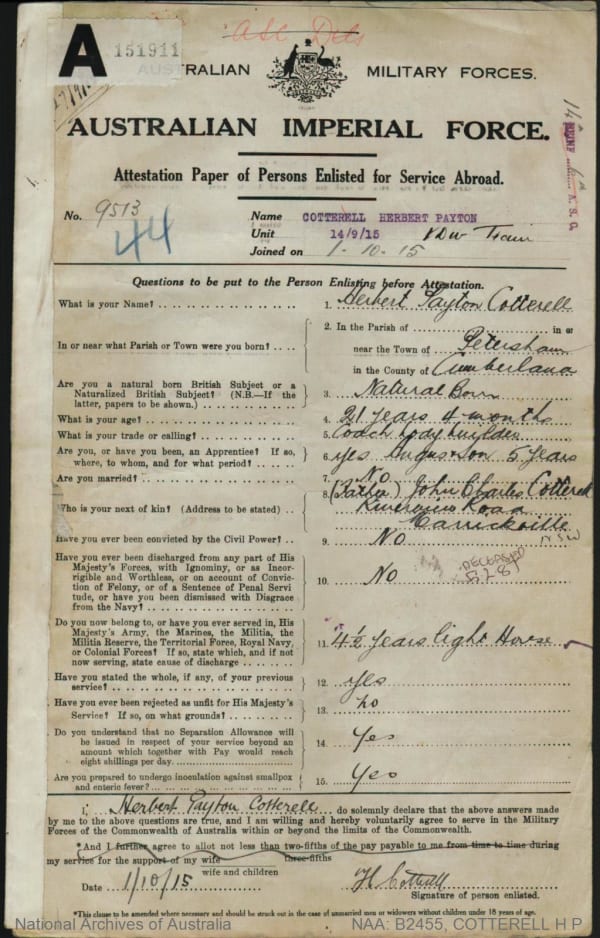 ASC Dets
A 151911
AUSTRALIAN MILITARY FORCES.
AUSTRALIAN IMPERIAL FORCE.
Attestation Paper of Persons Enlisted for Service Abroad.
No. 9513
44
Name COTTERELL HERBERT PAYTON
Unit 14/9/15 Train
Joined on 1-10-15
Questions to be put to the Person Enlisting before Attestation.
What is your Name? 1. Herbert Payton Cotterell
In or near what Parish or Town were you born? 2. In the Parish of in or
near the Town of Petersham
in the County of Cumberland
Are you a natural born British Subject or a
Naturalized British Subject? (N.B.—If the
latter, papers to be shown.) 3. Natural Born
What is your age? 4. 21 years 4 months
What is your trade or calling? 5. Coach body builder
Are you, or have you been, an Apprentice? If so,
where, to whom, and for what period? 6. yes Angus & Son 5 years
Are you married? 7. No
Who is your next of kin? (Address to be stated) 8. (Father) John Charles Cotterell
Road
Marrickville
NSW
Have you ever been convicted by the Civil Power? 9. No
Have you ever been discharged from any part of His
Majesty's Forces, with Ignominy, or as Incor-
rigible and Worthless, or on account of Convic-
tion of Felony, or of a Sentence of Penal Servi
tude, or have you been dismissed with Disgrace
from the Navy? 10. No
DECEASED
Do you now belong to, or have you ever served in, His
Majesty's Army, the Marines, the Militia, the
Militia Reserve, the Territorial Force, Royal Navy,
or Colonial Forces? If so, state which, and if not
now serving, state cause of discharge 11. 4½ years light Horse
Have you stated the whole, if any, of your previous
service? 12. yes
Have you ever been rejected as unfit for His Majesty's
Service? If so, on what grounds? 13. no
Do you understand that no Separation Allowance will
be issued in respect of your service beyond an
amount which together with Pay would reach
eight shillings per day. 14. Yes
Are you prepared to undergo inoculation against smallpox
and enteric fever? 15. Yes
I, Herbert Payton Cotterell do solemnly declare that the above answers made
by me to the above questions are true, and I am willing and hereby voluntarily agree to serve in the Military
Forces of the Commonwealth of Australia within or beyond the limits of the Commonwealth.
*And I further agree to allot not less than two-fifths of the pay payable to me from time to time during
three-fifths
my service for the support of my wife
wife and children
Date 1/10/15 H Cotterell
Signature of person enlisted.
*This clause to be amended where necessary and should be struck out in the case of unmarried men or widowers without children under 18 years of age.
National Archives of Australia NAA: B2455, COTTERELL H P